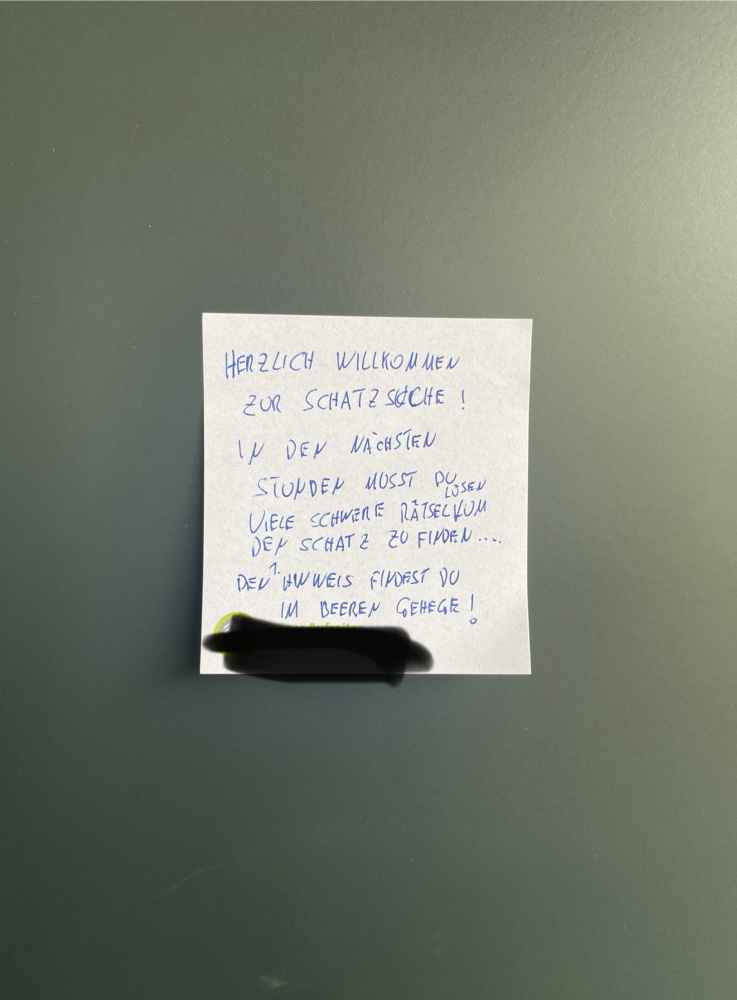 HERZLICH WILLKOMMEN
ZUR SCHATZSUCHE!
IN DEN NÄCHSTEN
STUNDEN MUSST DU
VIELE SCHWERE RÄTSEL LÖSEN UM
DEN SCHATZ ZU FINDEN....
DEN 1. HINWEIS FINDEST DU
IM BEEREN GEHEGE!